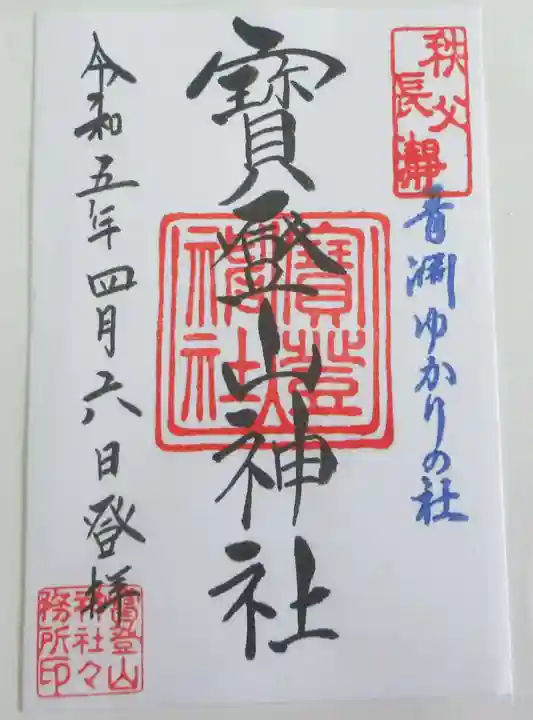 秩父
長瀞
青淵ゆかりの社
寳登山神社
寳登山神社
令和五年四月六日登拝
寳登山
神社々
務所印